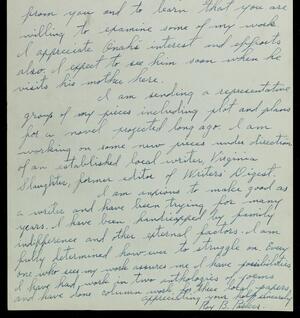 from you and to learn that you are
willing to examine some of my work
I appreciate Onah's interest and efforts
also. I expect to see him soon when he
visits his mother here.
I am sending a representative
group of my pieces including plot and plans
for a novel projected long ago. I am
working on some new pieces under direction
of an established local writer, Virginia
Slaughter, former editor of Writers' Digest.
I am anxious to make good as
a writer and have been trying for many
years. I have been handicapped by family
indifference and other external factors. I am
fully determined however to struggle on. Every
one who sees my work assures me I have possibilities
I have had work in two anthologies of poems
and have done column work for these local papers,
appreciating your help sincerely
Roy B.